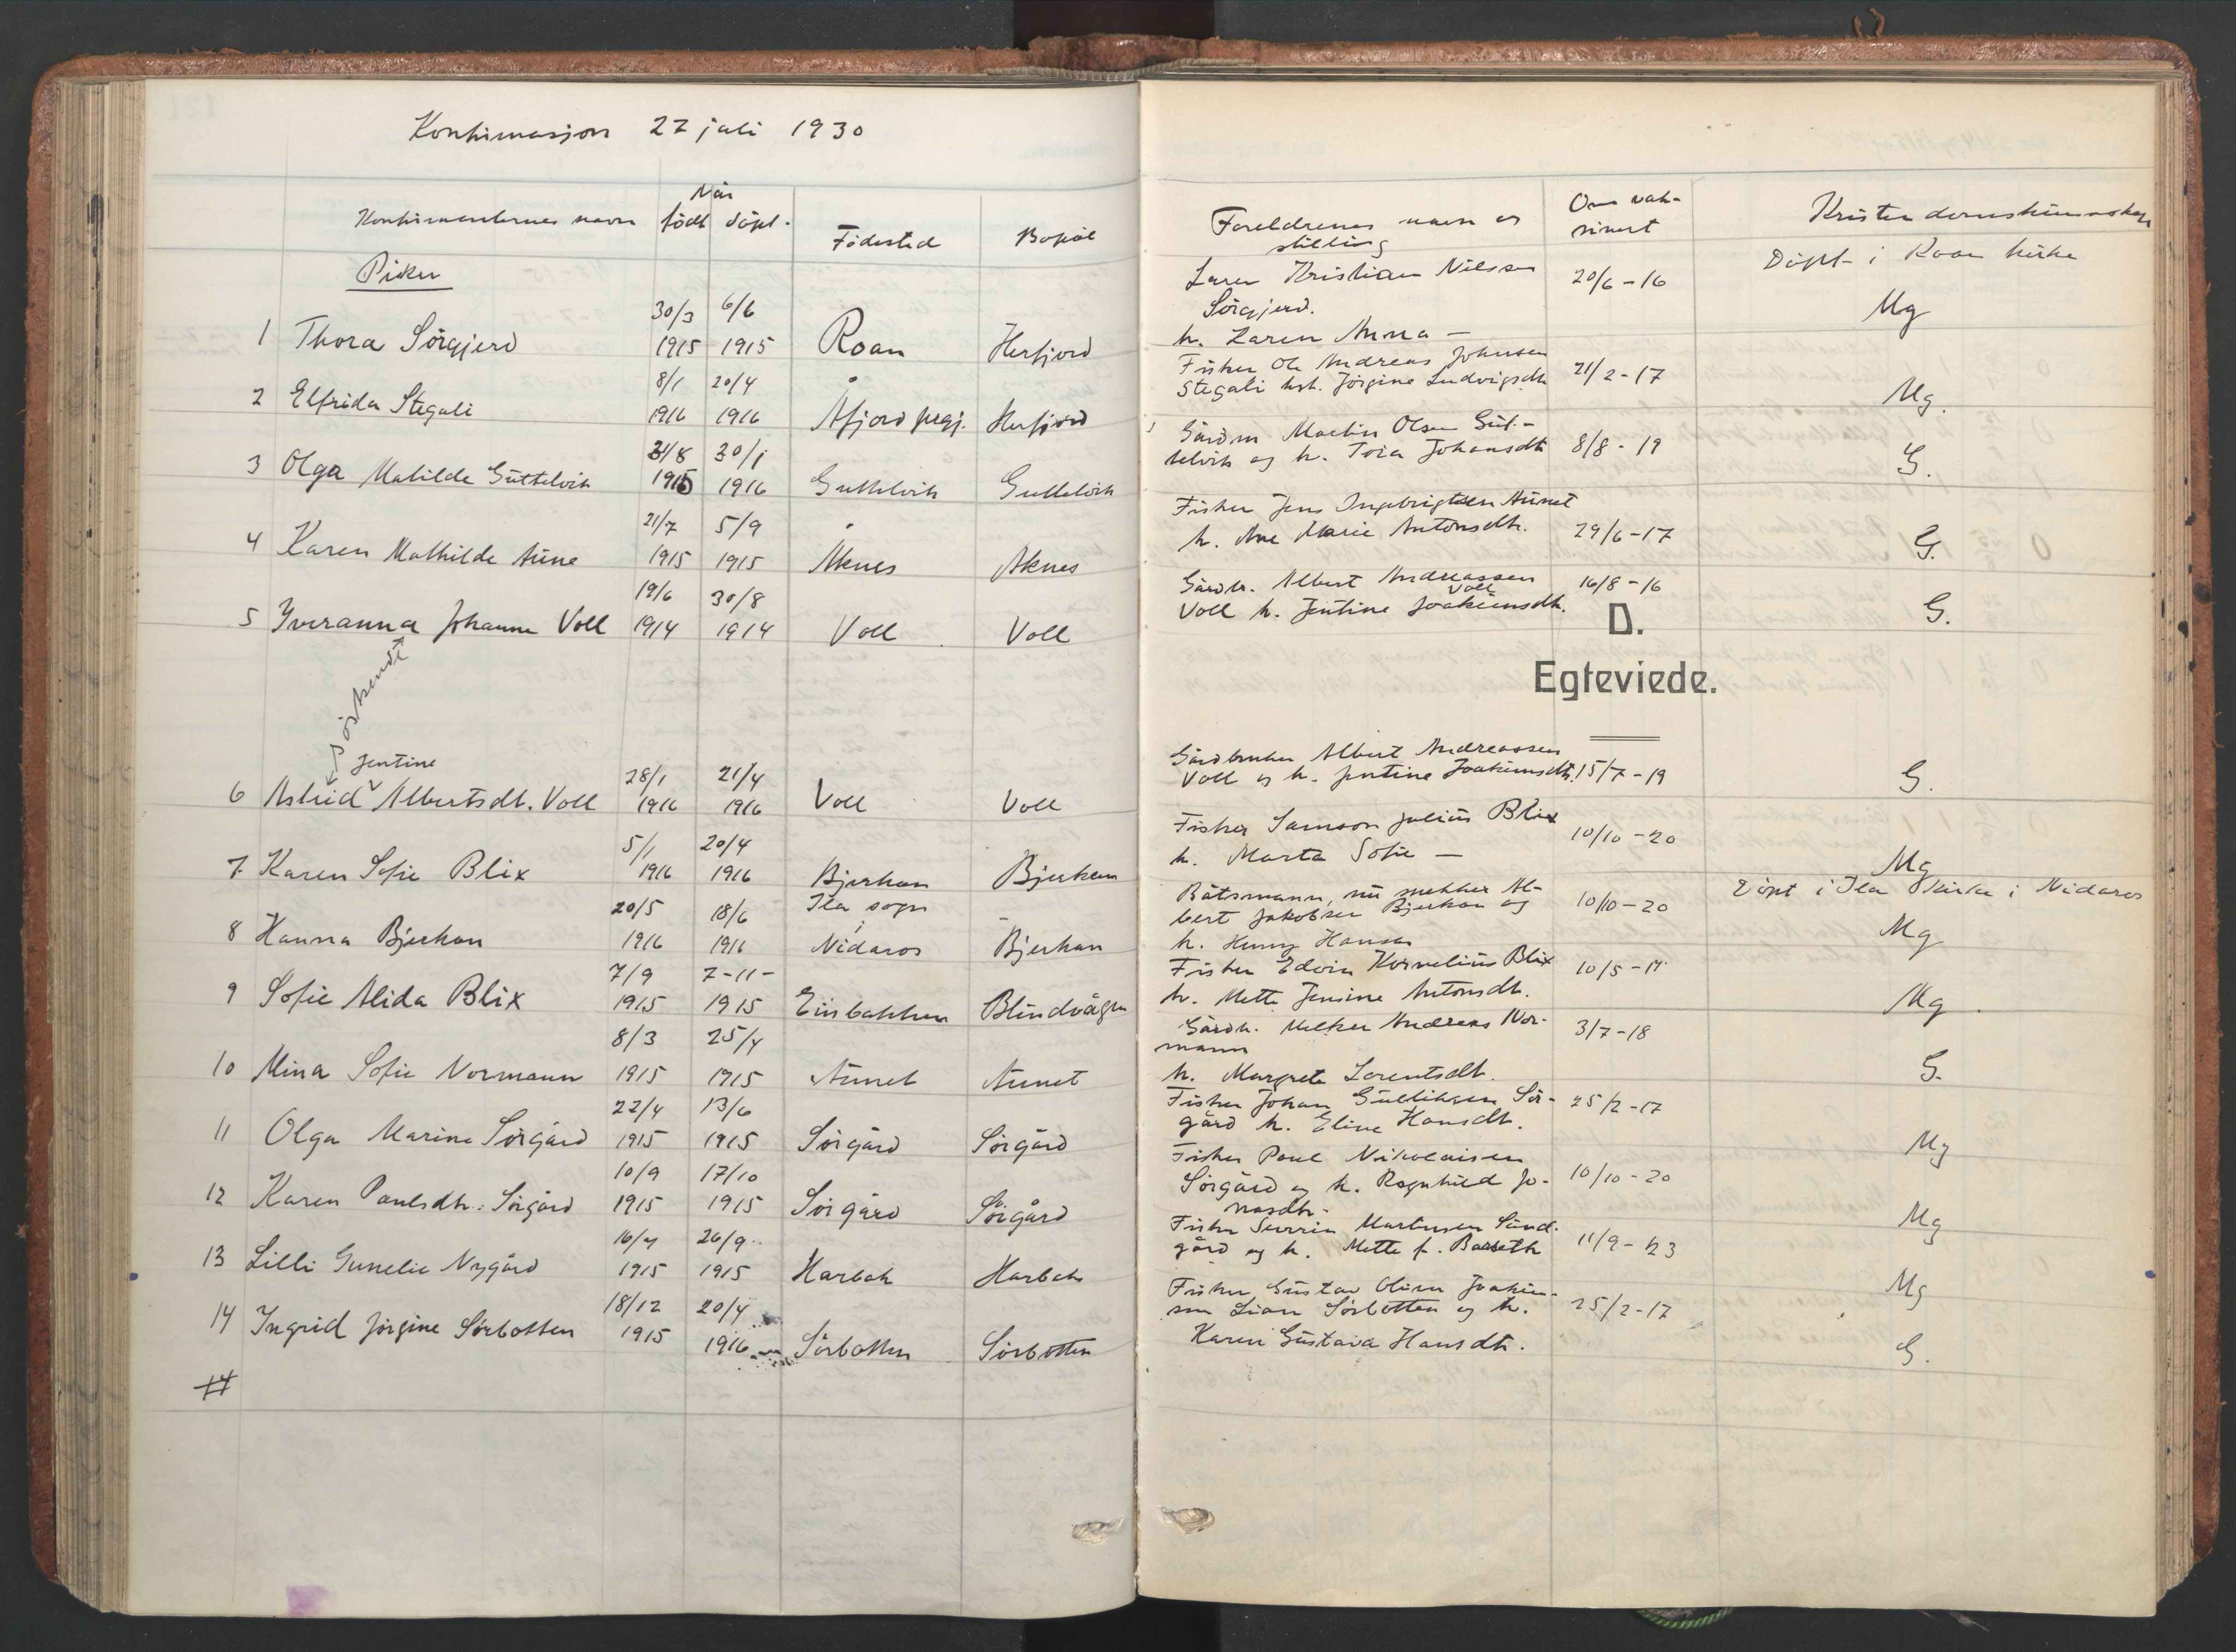 Konfirmasjon 27 juli 1930
Konfirmanternes navn
Når
født døpt.
Fødested
Bopæl
Foreldrenes navn og
stilling
Om vak-
sinert
Kristendomskunnskap
Piker
1 Thora Sörgjerd
30/3 1915
6/6 1915
Roan
Herfjord
Kristian Nilssen
Sörgjerd.
h. Laren Anna —
20/6-16
Döpt i Roan kirke
Mg
2 Elfrida Stegali
8/1 1916
20/4 1916
Åfjord prgj.
Herfjord
Fisker Ole Andreas Johnsen
Stegali hst. Jörgine Ludvigsdtr
21/2-17
Mg.
3 Olga Matilde Guttelvik
1915
30/1 1916
Guttelvik
Guttelvik
Gårdm Martin Olsen Gut-
telvik og h. Johansdtr
8/8-19
G.
4 Karen Mathilde Aune
21/7 1915
5/9 1915
Åknes
Aknes
Fisker Jens Ingebrigtsen Aunet
h. Ane Marie Antonsdtr.
29/6-17
G.
5 Yveranna Johanne Voll
19/6 1914
30/8 1914
Voll
Voll
Gårdbr. Albert Andreassen
Voll
Voll h. Jentine Joakimsdtr.
16/8-16
G.
D.
Egteviede.
söskende
Jentine
6 Astrid Albertsdt. Voll
28/1 1916
21/4 1916
Voll
Voll
Gårdbruker Albert Andreassen
Voll og h. Jentine Joakimsdtr.
15/7-19
G.
7 Karen Sofie Blix
5/1 1916
20/4 1916
Bjerkan
Bjerkan
Fisker Samson Julius Blix
h. Marta Sofie —
10/10-20
Mg
8 Hanna Bjerkan
20/5 1916
18/6 1916
Ila sogn
i
Nidaros
Bjerkan
Båtsmann, nu snekker Al-
bert Jakobsen Bjerkan og
h. Henny Hansen
10/10-20
Döpt i Ila kirke i Nidaros
Mg
9 Sofie Alida Blix
7/9 1915
7-11- 1915
Einbakken
Blindvågen
Fisker Edvin Kornelius Blix
h. Mette Jensine Antonsdtr.
Mg.
10 Mina Sofie Normann
8/3 1915
25/4 1915
Aunet
Aunet
Gårdbr. Melker Andreas Nor-
mann
h. Margrete Lorentsdtr.
3/7-18
G.
11 Olga Marine Sörgård
22/4 1915
13/6 1915
Sörgård
Sörgård
Fisker Johan Gulliksen Sör-
gård h. Eline Hansdtr.
25/2-17
Mg
12 Karen Paulsdtr. Sörgård
10/9 1915
17/10 1915
Sörgård
Sörgård
Fisker Paul Nikolaisen
Sörgård og h. Ragnhild Jo-
nasdtr.
10/10-20
Mg
13 Lilli Gunelie Nygård
1915
26/9 1915
Harbak
Harbak
Fisker Martinsen
gård og h. Mette f.
11/9-23
Mg
14 Ingrid Jörgine Sörbotten
18/12 1915
20/4 1916
Sörbotten
Sörbotten
Fisker Gustav Joakim-
sen Lian Sörbotten og h.
Karen Gustava Hansdtr.
25/2-17
G.